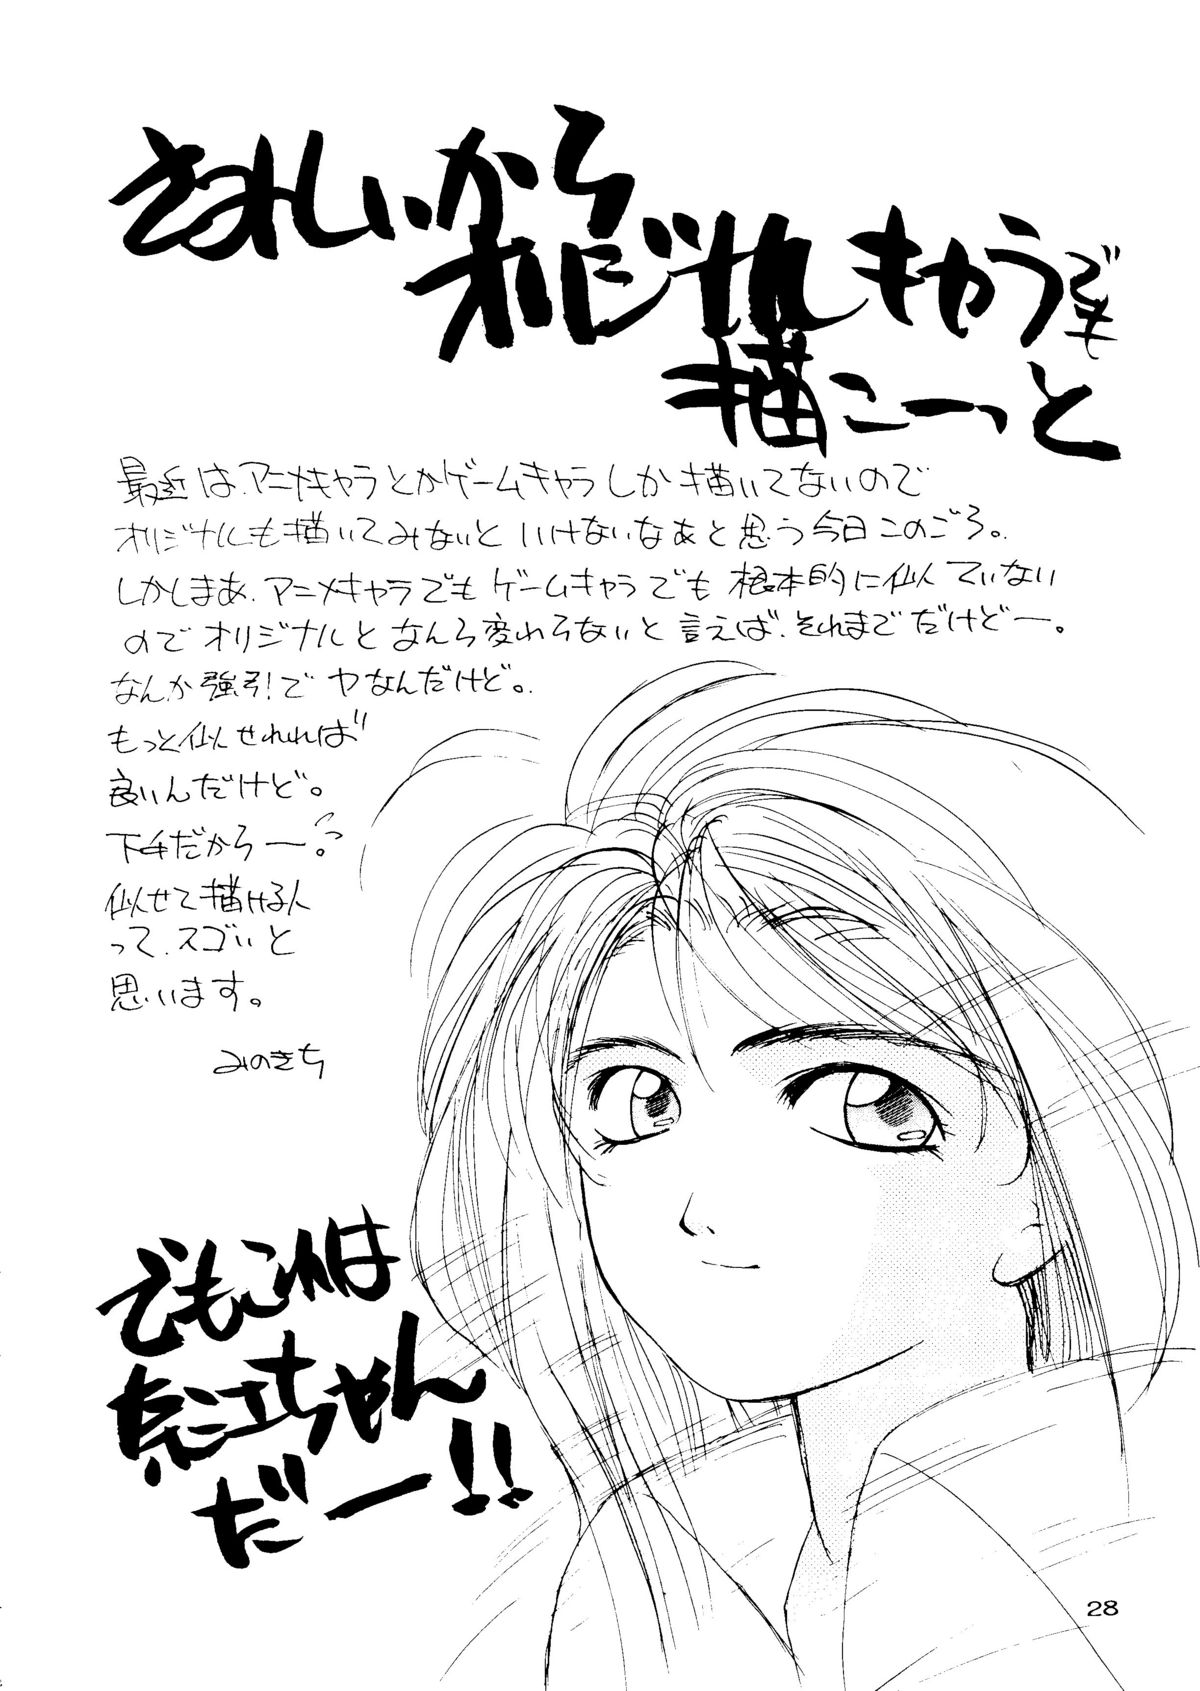 さみしいから
オリジナルキャラでも
描こーっと
最近は、アニメキャラとかゲームキャラしか描いてないので
オリジナルも描いてみないといけないなぁと思う今日このごろ。
しかしまあ、アニメキャラでもゲームキャラでも根本的に似ていない
のでオリジナルとなんら変わらないと言えば、それまでだけどー。
なんか強引でヤなんだけど。
もっと似せれれば
良いんだけど。
下手だからー。
似せて描ける人
って、スゴいと
思います。
みのきち
でもこれは
ちゃん
だー!!
28